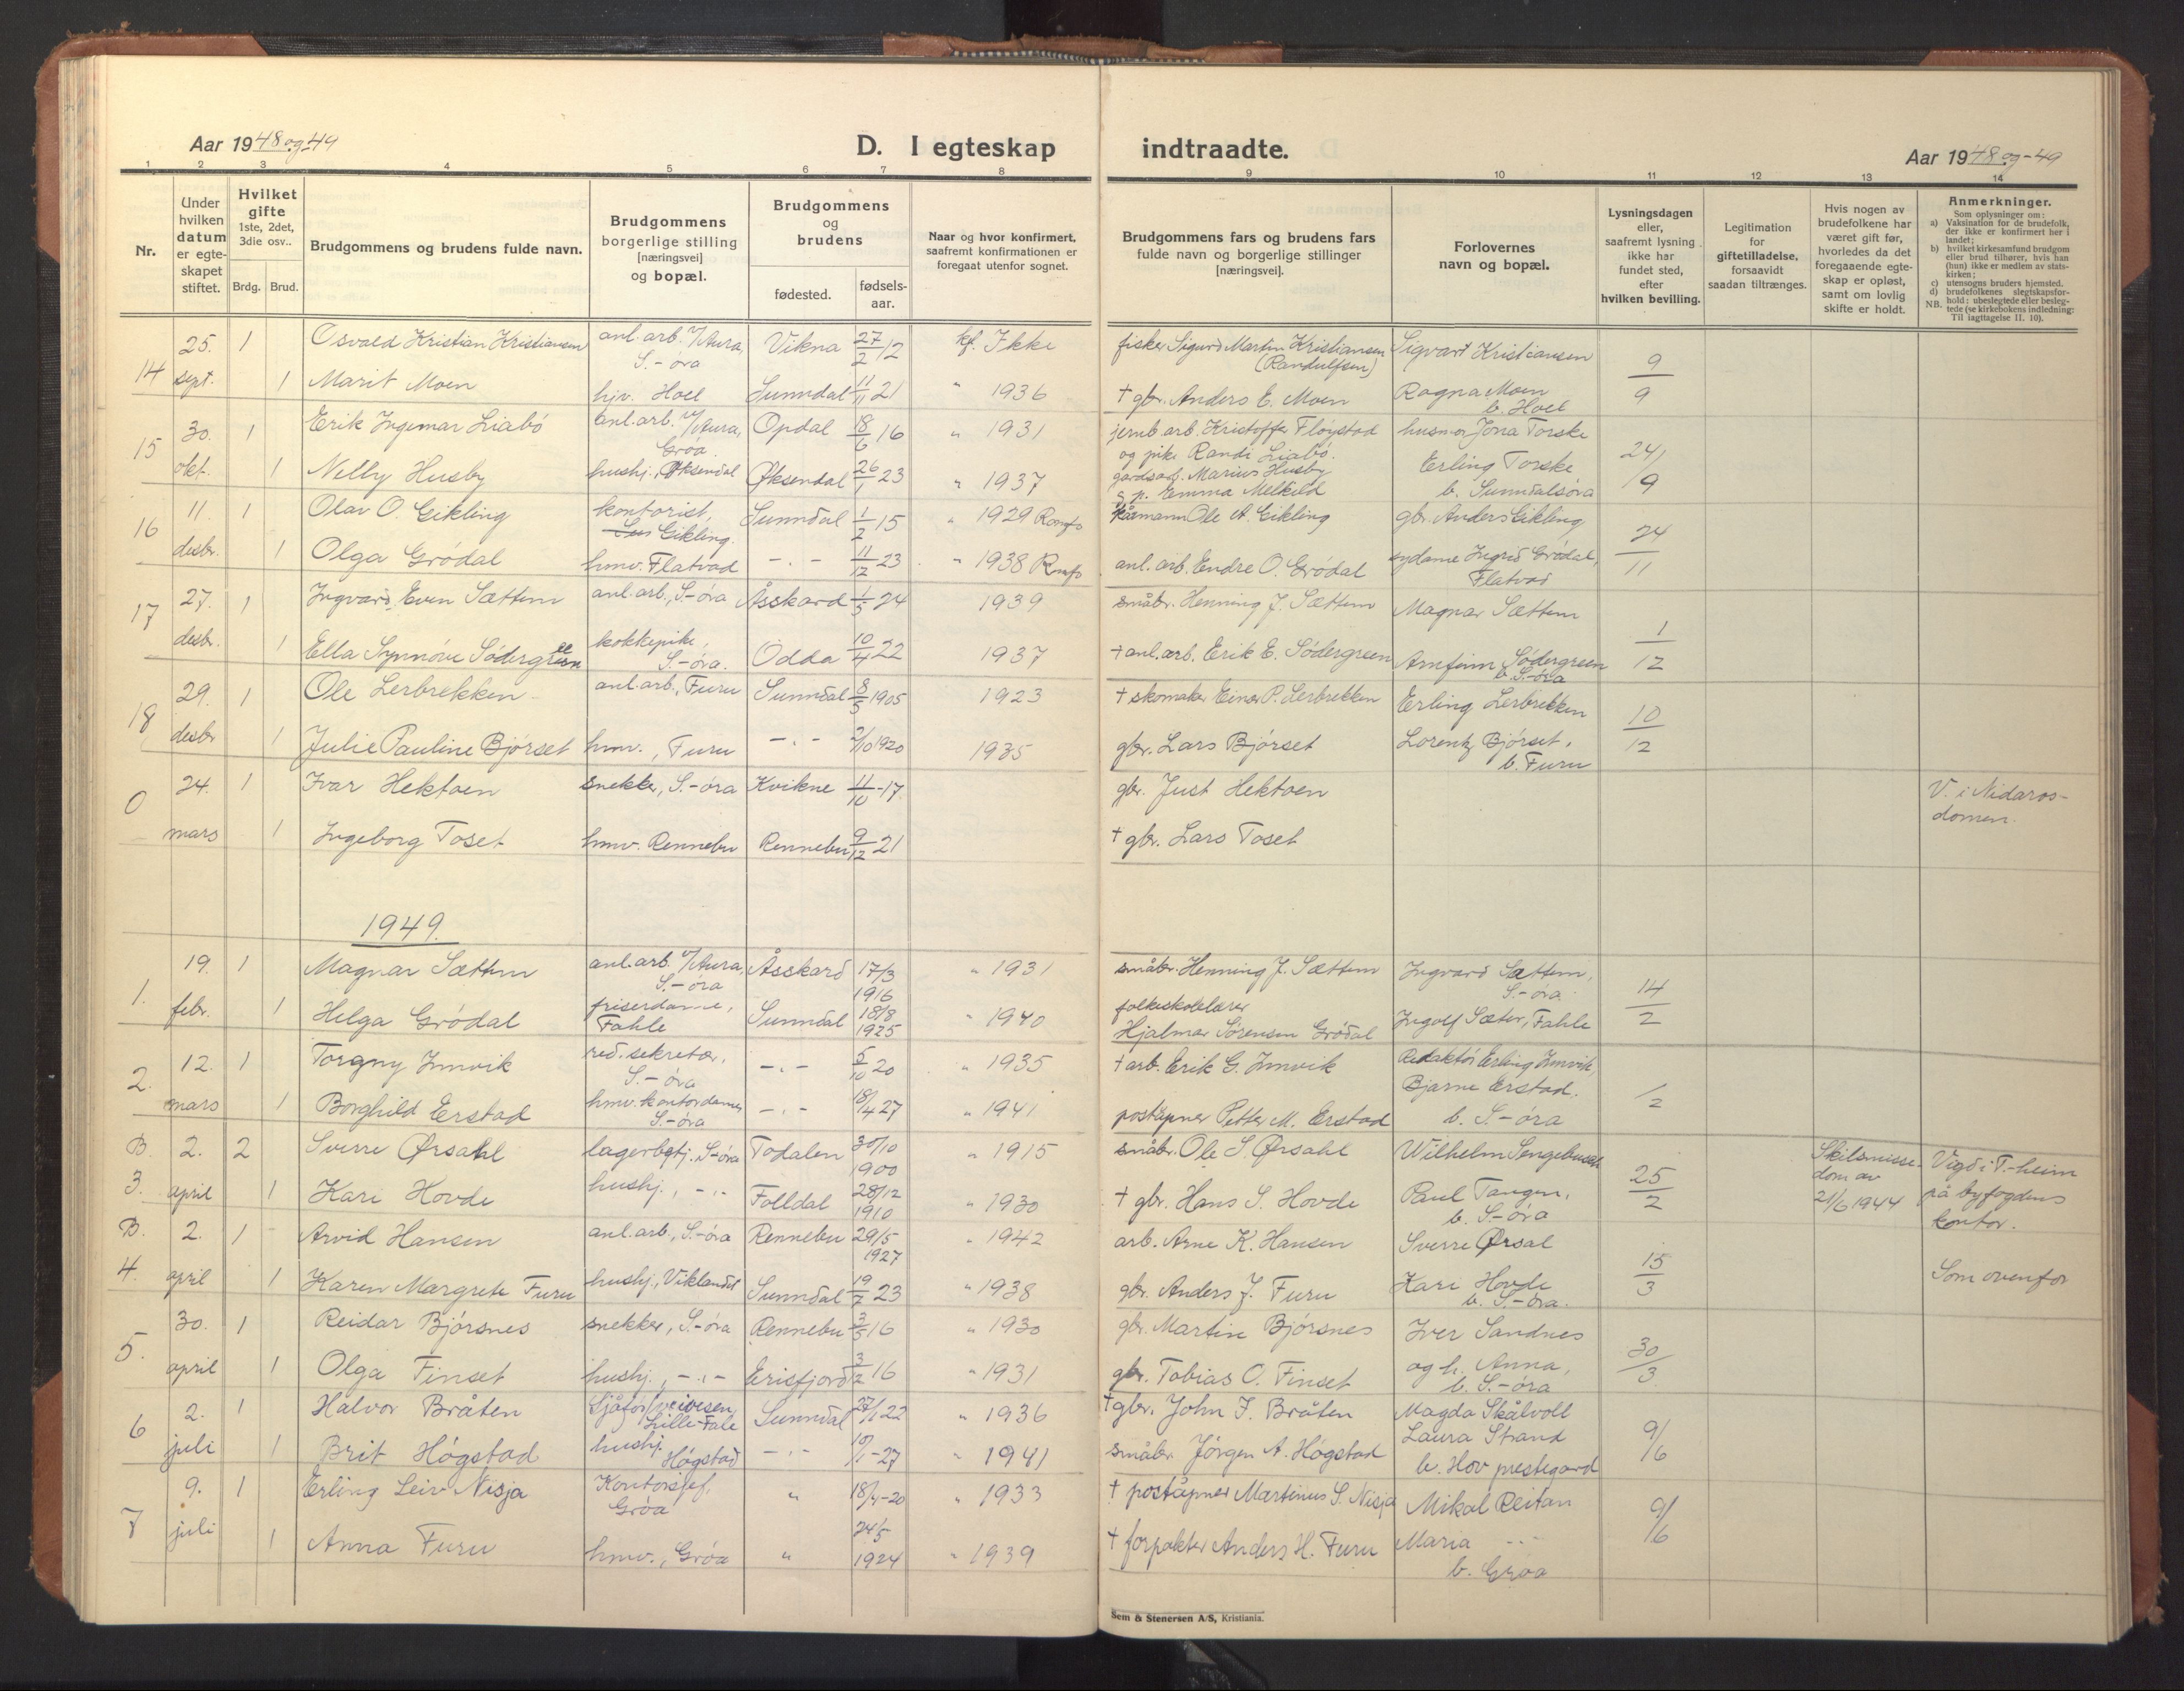 Aar 1948 og -49
D. I egteskap indtraadte.
Aar 1948 og -49
1 2 3 4 5 6 7 8 9 10 11 12 13 14
Nr.
Under hvilken datum er egte-skapet stiftet.
Hvilket gifte 1ste, 2det, 3die osv..
Brdg. Brud.
Brudgommens og brudens fulde navn.
Brudgommens borgerlige stilling [næringsvei] og bopæl.
Brudgommens og brudens
fødested. fødsels-aar.
Naar og hvor konfirmert, saafremt konfirmationen er foregaat utenfor sognet.
Brudgommens fars og brudens fars fulde navn og borgerlige stillinger [næringsvei].
Forlovernes navn og bopæl.
Lysningsdagen eller, saafremt lysning ikke har fundet sted, efter hvilken bevilling.
Legitimation for giftetilladelse, forsaavidt saadan tiltrænges.
Hvis nogen av brudefolkene har været gift før, hvorledes da det foregaaende egte-skap er opløst, samt om lovlig skifte er holdt.
Anmerkninger.
Som oplysninger om:
a) Vaksination for de brudefolk, der ikke er konfirmert her i landet;
b) hvilket kirkesamfund brudgom eller brud tilhører, hvis han (hun) ikke er medlem av stats-kirken;
c) utensogns bruders hjemsted.
d) brudefolkenes slegtskapsfor-hold: ubeslegtede eller besleg-tede (se kirkebokens indledning:
NB. Til iagttagelse II. 10).
14 25. sept. 1 Osvald Kristian Kristiansen anl. arb. v/Aura, S.-øra Vikna 27/2 12 kf. Ikke fisker Sigurd Martin Kristiansen (Randulfsen) Sigvart Kristiansen 9/9
1 Marit Moen hjv. Hoel Sunndal 11/11 21 " 1936 † gbr. Anders E. Moen Ragna Moen b. Hoel
15 30. okt. 1 Erik Ingemar Liabø anl. arb. v/Aura, Grøa. Opdal 18/6 16 " 1931 jernb. arb. Kristoffer Fløystad og pike Randi Liabø. husmor Jona Torske 24/9
1 Nelly Husby hushj., Øksendal Øksendal 26/1 23 " 1937 gardsarb. Marius Husby g p. Emma Melkild Erling Torske b. Sunndalsøra
16 11. desbr. 1 Olav O. Gikling kontorist, Gikling. Sunndal 1/2 15 " 1929 Romfo kårmann Ole A. Gikling gbr. Anders Gikling 24/11
1 Olga Grødal hmv. Flatvad - . - 11/12 23 " 1938 Romfo anl. arb. Endre O. Grødal sydame Ingrid Grødal, Flatvad
17 27. desbr. 1 Ingvard Even Sættem anl. arb., S.-øra Åsskard 1/5 24 1939 småbr. Henning J. Sættem Magnar Sættem 1/12
1 Ella Synnøve Södergreen kokkepike, S.-øra. Odda 10/4 22 1937 † anl. arb. Erik E. Södergreen Arnfinn Södergreen b. S.-øra
18 29. desbr 1 Ole Lerbrekken anl. arb., Furu Sunndal 8/5 1905 1923 † skomaker Einar P. Lerbrekken Erling Lerbrekken 10/12
1 Julie Pauline Bjørset hmv., Furu - . - 2/10 1920 1935 gbr. Lars Bjørset Lorentz Bjørset. b. Furu
0 24. mars 1 Ivar Hektoen snekker, S.-øra Kvikne 11/10 -17 gbr. Just Hektoen V. i Nidaros-domen.
1 Ingeborg Toset hmv. Rennebu Rennebu 9/12 21 † gbr. Lars Toset
1949.
1. 19. febr. 1 Magnar Sættem anl. arb. v/Aura, S.-øra Åsskard 17/3 1916 " 1931 småbr. Henning J. Sættem Ingvard Sættem, S.-øra. 14/2
1 Helga Grødal friserdame, Fahle Sunndal 18/8 1925 " 1940 folkeskolelærer Hjalmar Sørensen Grødal Ingolf Sæter, Fahle
2. 12. mars 1 Torgny Innvik red. sekretær, S.-øra - . - 5/10 20 " 1935 † arb. Erik G. Innvik Redaktør Erling Innvik, /2
1 Borghild Erstad hmv. kontordame, S.-øra - . - 18/4 27 " 1941 poståpner Petter M. Erstad Bjarne Erstad. b. S.-øra
B. 3. 2. april 2 Sverre Ørsahl lagerbetj. S-øra Todalen 30/10 1900 " 1915 småbr. Ole S Ørsahl Wilhelm Sengebusch 25/2 Skilsmisse-dom av 21/6 1944 Vigd i T.-heim på byfogdens kontor.
1 Kari Hovde hushj., - . - Folldal 28/12 1910 " 1930 † gbr. Hans S. Hovde Paul Tangen, b. S-øra
B. 4. 2. april 1 Arvid Hansen anl. arb., S.-øra Rennebu 29/5 1927 " 1942 arb. Arne K. Hansen Sverre Ørsal 15/3 Som ovenfor
1 Karen Margrete Furu hushj., Viklandet Sunndal 19/7 23 " 1938 gbr. Anders J. Furu Kari Hovde b. S.-øra.
5. 30. april 1 Reidar Bjørsnes snekker, S.-øra Rennebu 3/5 16 " 1930 gbr. Martin Bjørsnes Iver Sandnes 30/3
1 Olga Finset hushj., - . - Erisfjord 3/2 16 " 1931 gbr. Tobias O. Finset og h. Anna, b. S.-øra
6 2. juli 1 Halvor Bråten Sjåfør Lille-Fale Sunndal 27/1 22 " 1936 † gbr. John J. Bråten Magda Skålvoll 9/6
1 Brit Høgstad hushj. Høgstad - . - 10/1 -27 " 1941 småbr Jørgen A. Høgstad Laura Strand b. Hov prestegard
7 9. juli 1 Erling Leiv Nisja Kontorsjef, Grøa " 18/4 -20 " 1933 † poståpner Martinus S. Nisja Mikal Reitan 9/6
1 Anna Furu hmv., Grøa " 24/5 1924 " 1939 † forpakter Anders H. Furu Maria - . - b. Grøa
Sem & Stenersen A/S, Kristiania.